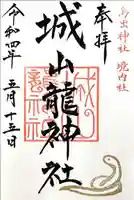 鳥出神社 境内社
奉拝
城山龍神社
令和四年 五月 十五日